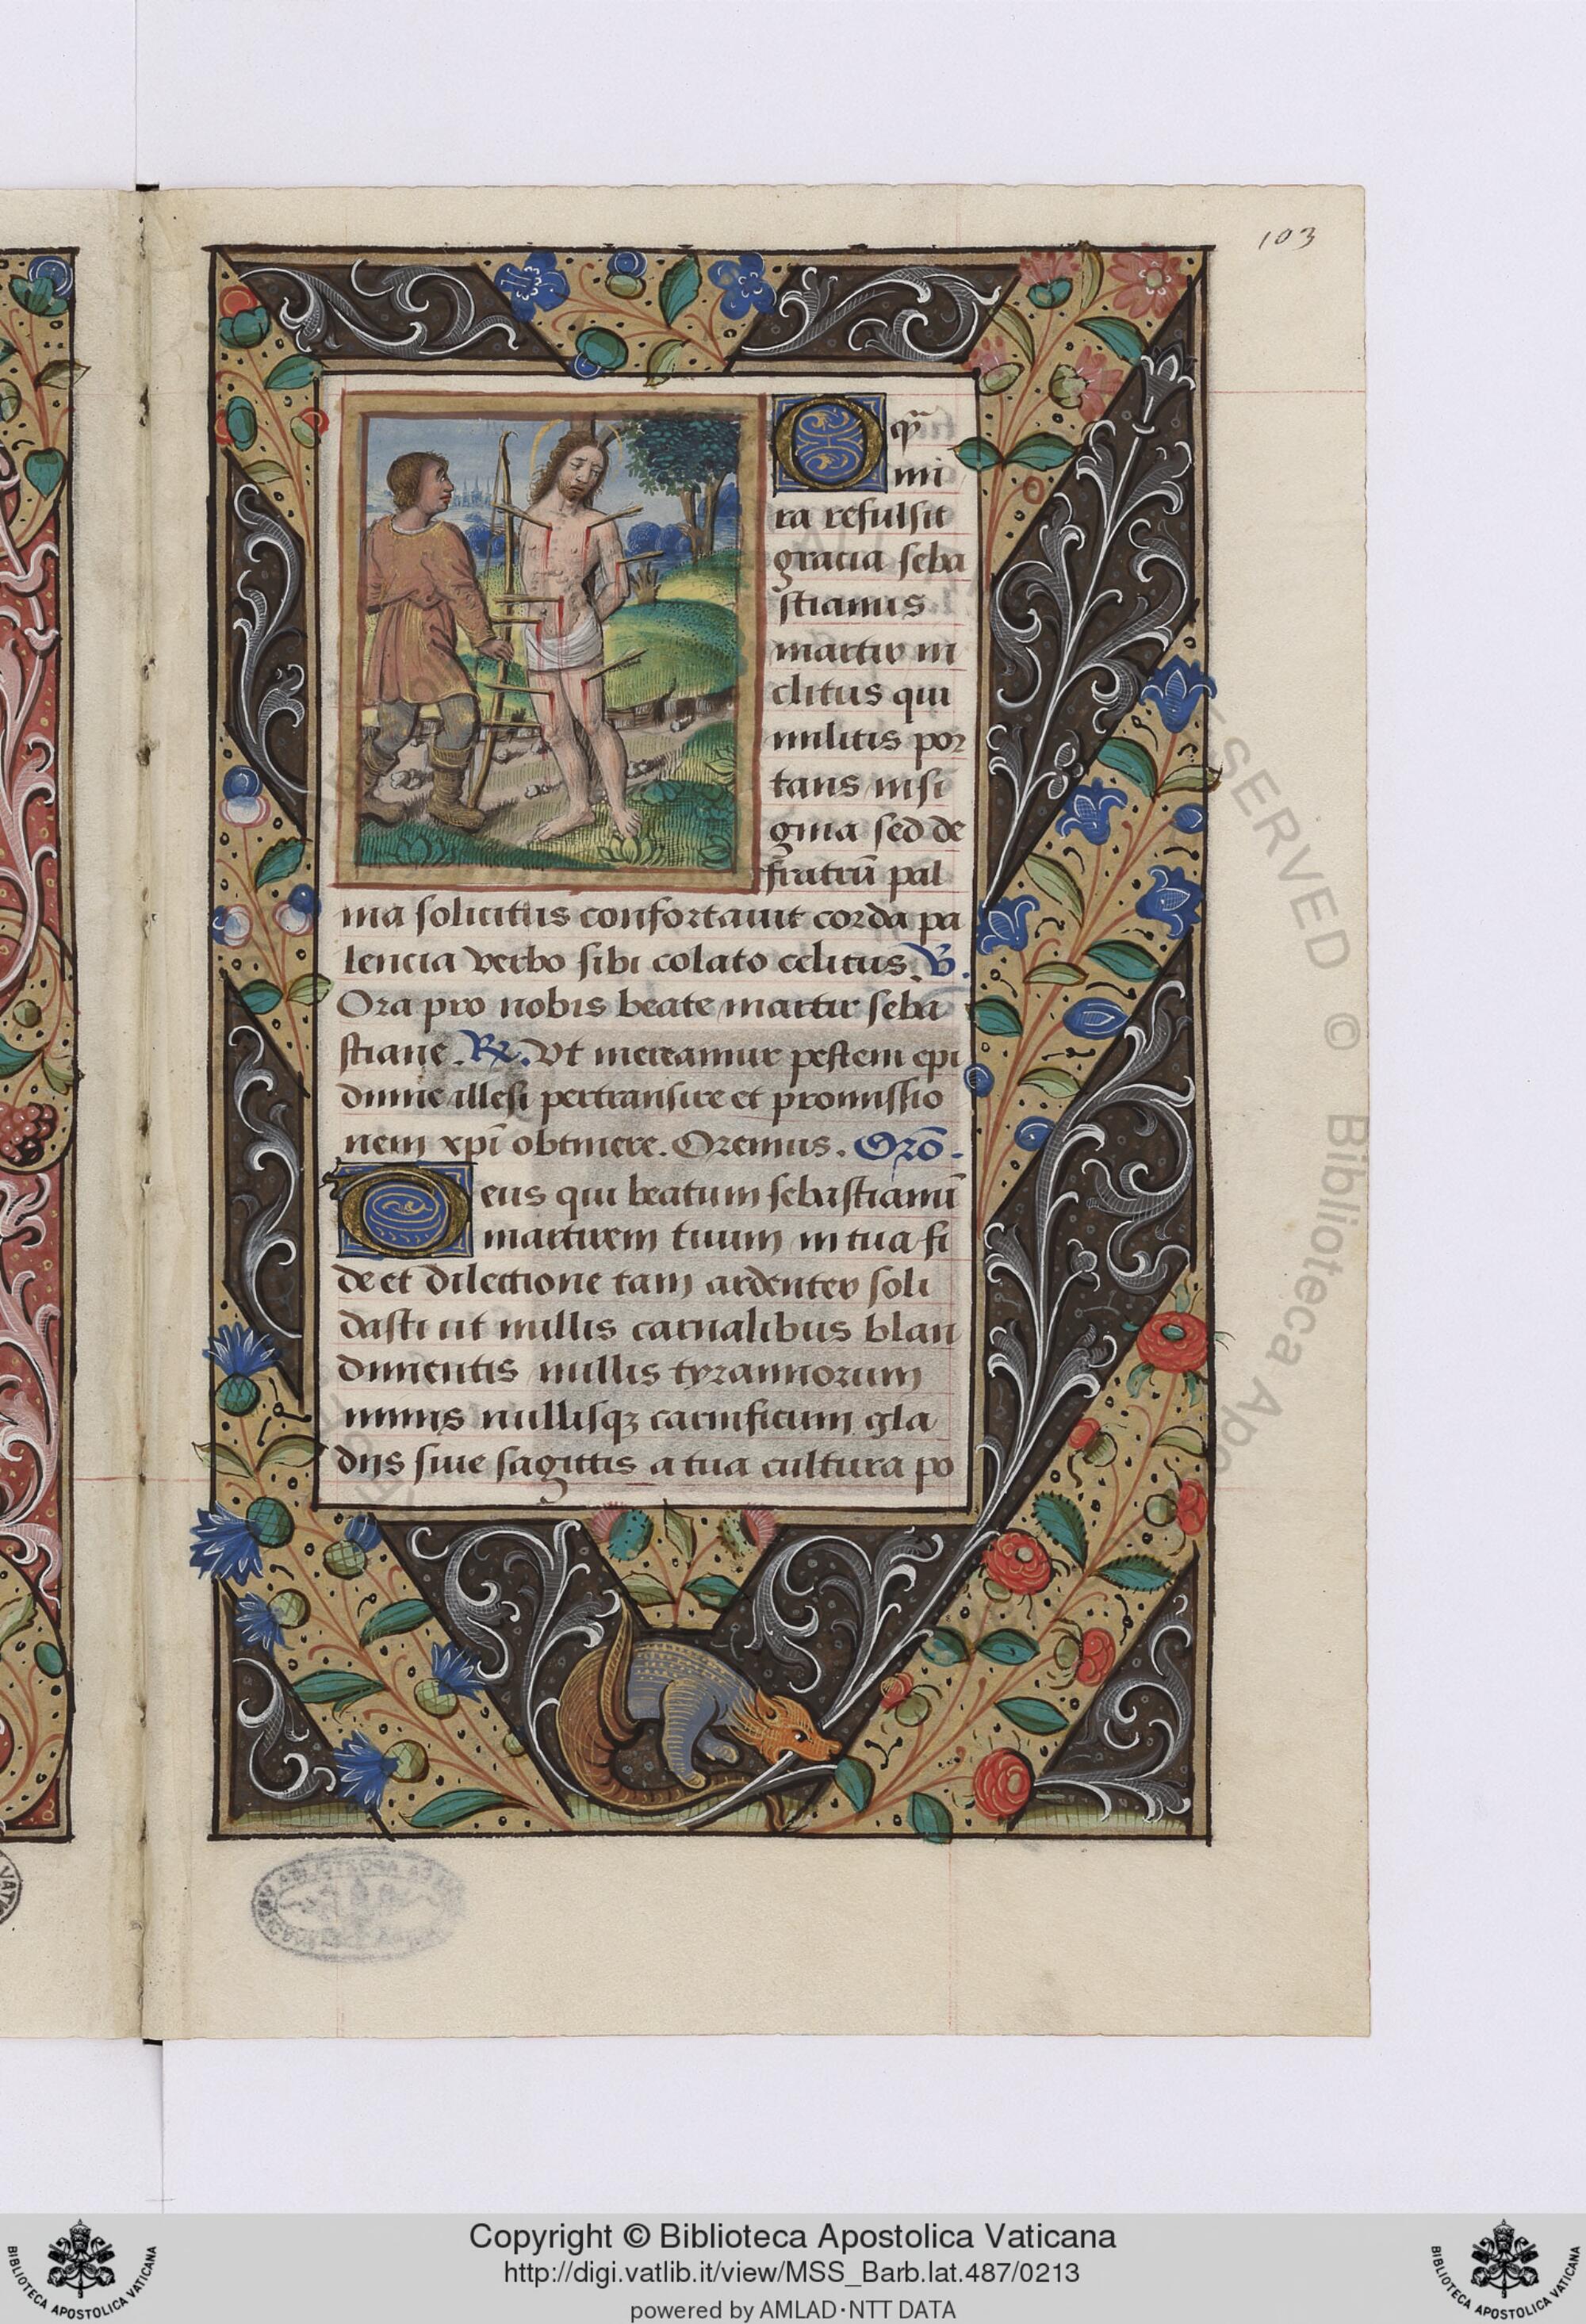 103
O qͫ
mi
ra refulsit
gracia seba
stianus
martir in
clitus qui
militis por
tans insi
gnia sed de
fratrū pal
ma solicitus confortauit corda pa
lencia verbo sibi colato celitus. ℣.
Ora pro nobis beate martir seba
stiane. ℞. Vt mereamur pestem epi
dimie illesi pertransire et promissio
nem xpī obtinere. Oremus. Orō.
Deus qui beatum sebastianū
martirem tuum in tua fi
de et dilectione tam ardenter soli
dasti ut nullis carnalibus blan
dimentis nullis tyrannorum
minis nullisqꝫ carnificum gla
dijs siue sagittis a tua cultura po
Copyright © Biblioteca Apostolica Vaticana
http://digi.vatlib.it/view/MSS_Barb.lat.487/0213
powered by AMLAD·NTT DATA
BIBLIOTECA APOSTOLICA VATICANA
BIBLIOTECA APOSTOLICA VATICANA